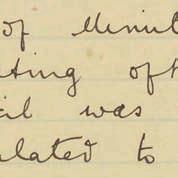 of Minu
eting of
il was
ulated to